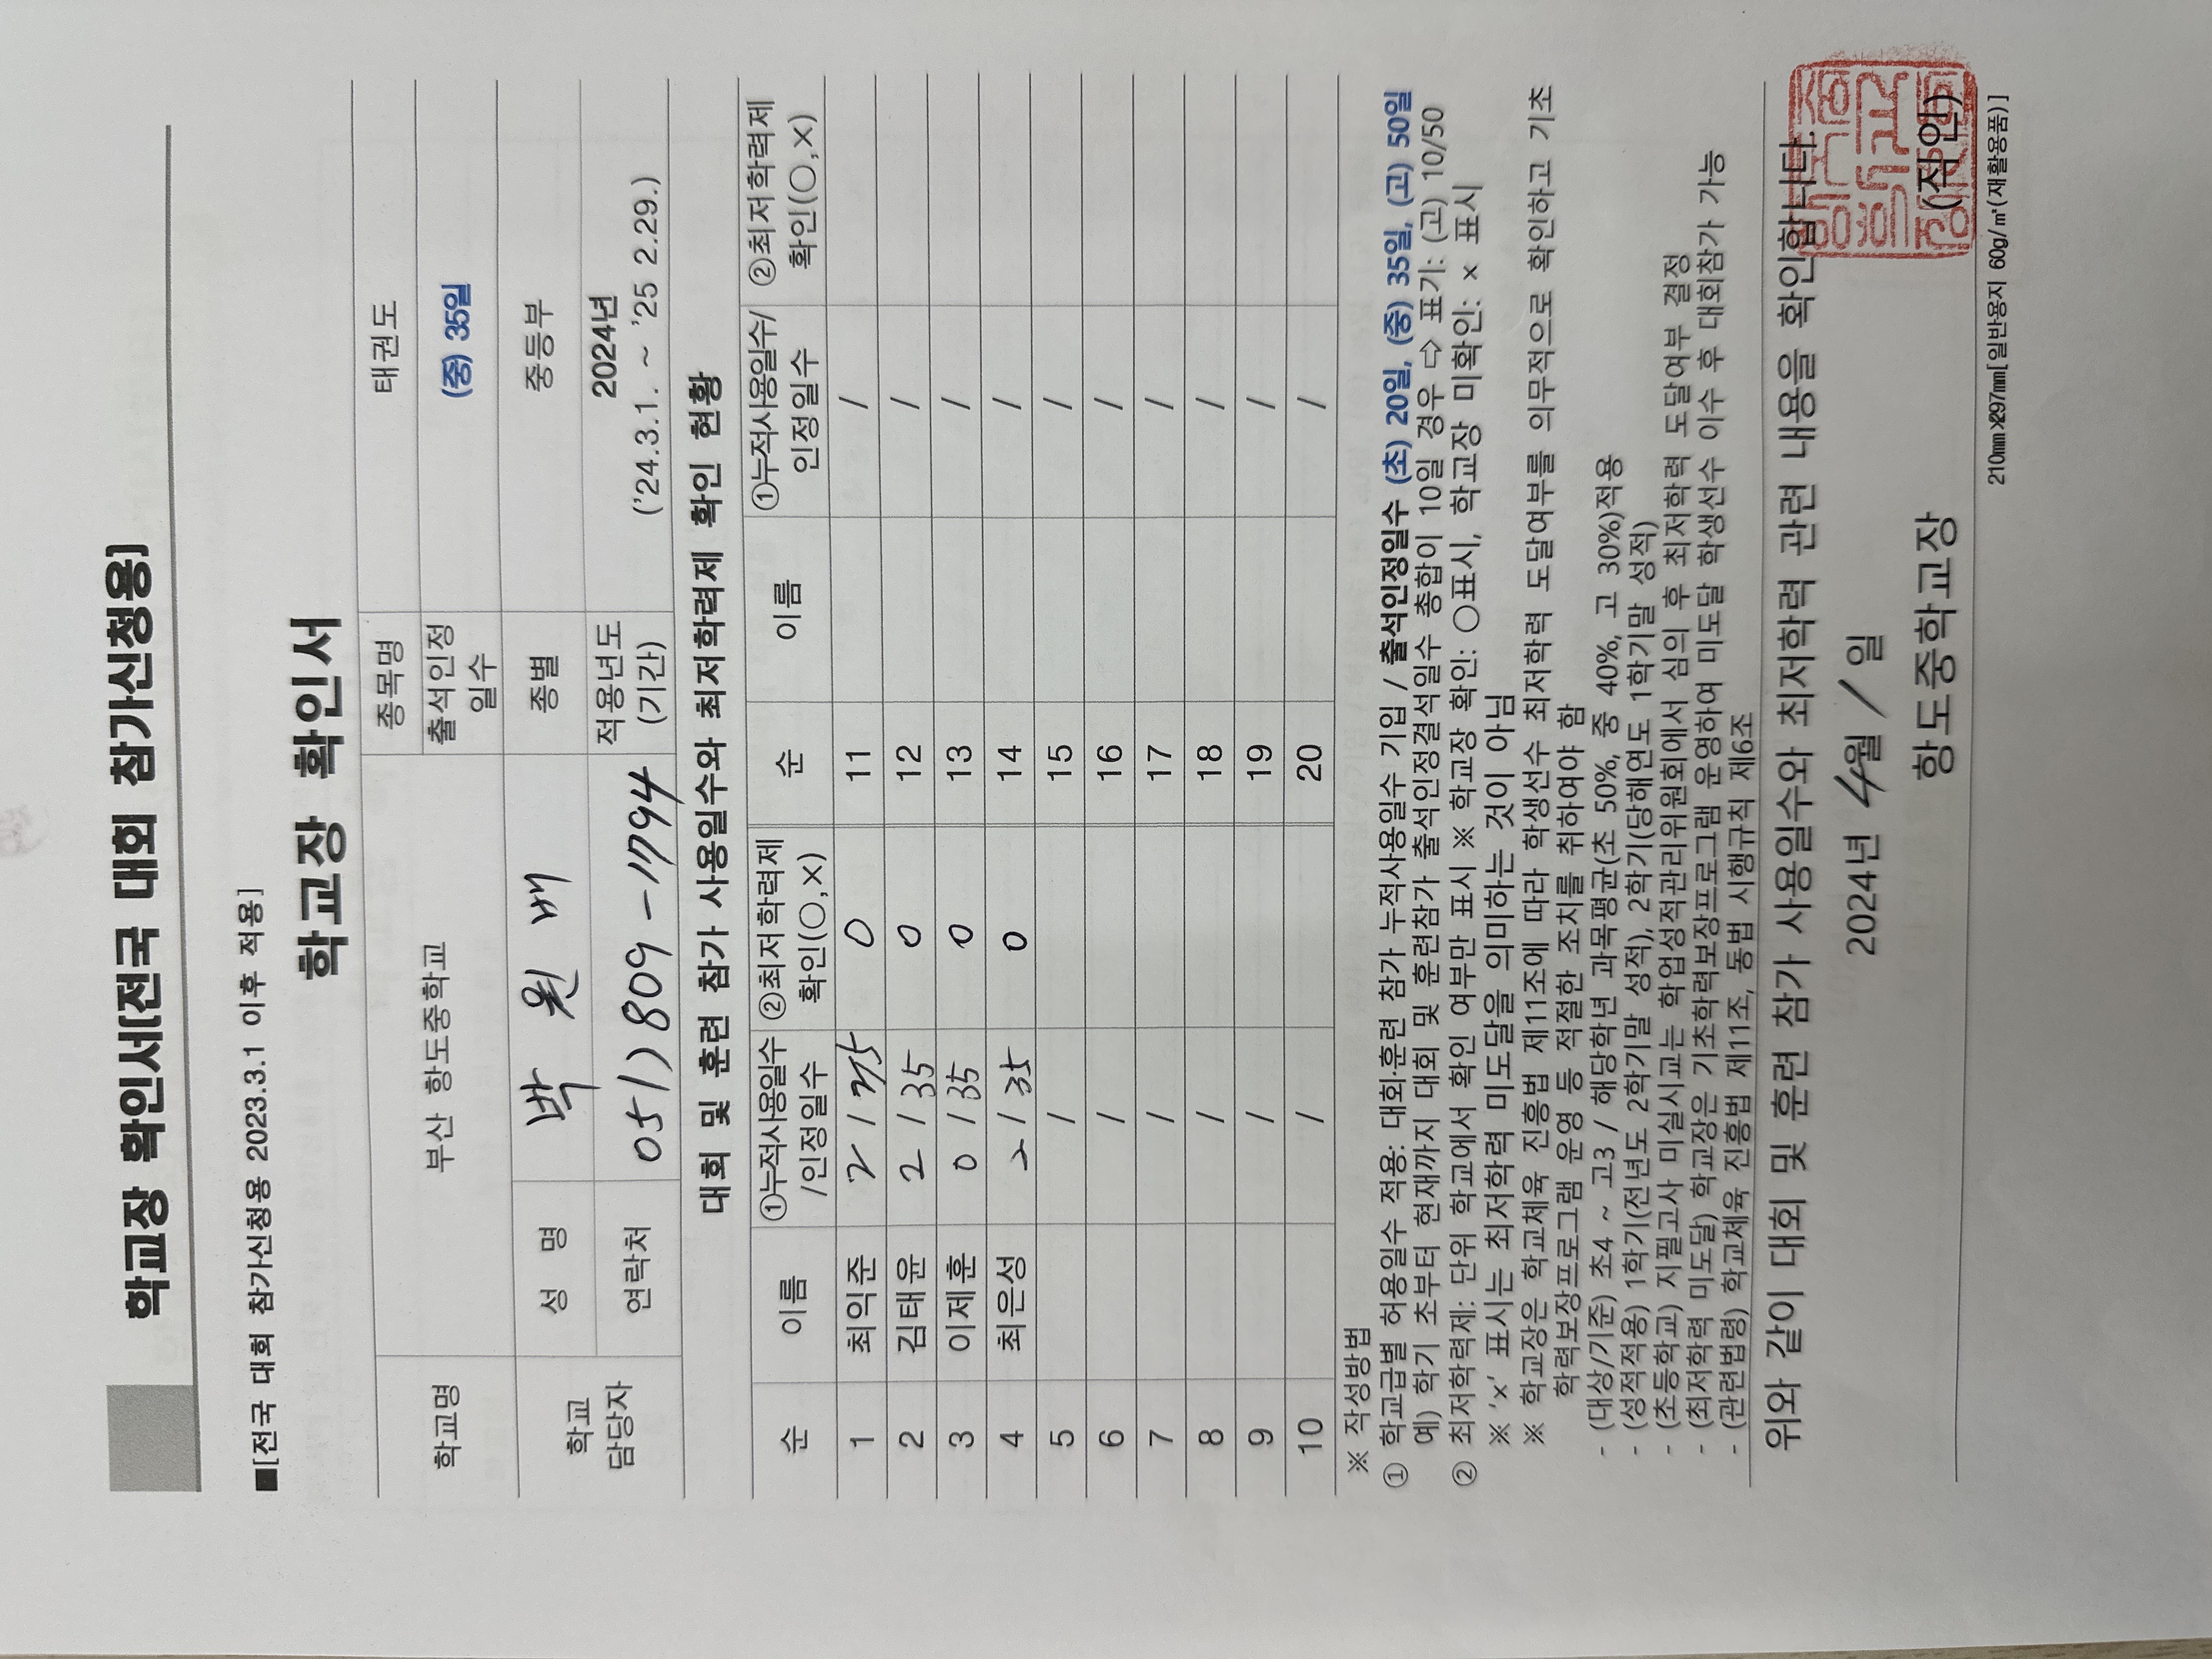 학교장 확인서(전국 대회 참가신청용)
■[전국 대회 참가신청용 2023.3.1 이후 적용]
학교장 확인서
학교명 부산 항도중학교 종목명 태권도
출석인정 일수 (중) 35일
학교 담당자 성 명 박 원 배 종별 중등부
연락처 051) 809-1794 적용년도 (기간) 2024년 ('24.3.1. ~ '25 2.29.)
대회 및 훈련 참가 사용일수와 최저학력제 확인 현황
순 이름 ①누적사용일수/인정일수 ②최저학력제 확인(○,×) 순 이름 ①누적사용일수/인정일수 ②최저학력제 확인(○,×)
1 최익준 2 / 35 ○ 11 /
2 김태윤 2 / 35 ○ 12 /
3 이제훈 0 / 35 ○ 13 /
4 최은성 2 / 35 ○ 14 /
5 / 15 /
6 / 16 /
7 / 17 /
8 / 18 /
9 / 19 /
10 / 20 /
※ 작성방법
① 학교급별 허용일수 적용: 대회·훈련 참가 누적사용일수 기입 / 출석인정일수 (초) 20일, (중) 35일, (고) 50일
예) 학기 초부터 현재까지 대회 및 훈련참가 출석인정결석일수 총합이 10일 경우 ⇨ 표기: (고) 10/50
② 최저학력제: 단위 학교에서 확인 여부만 표시 ※ 학교장 확인: ○표시, 학교장 미확인: × 표시
※ '×' 표시는 최저학력 미도달을 의미하는 것이 아님
※ 학교장은 학교체육 진흥법 제11조에 따라 학생선수 최저학력 도달여부를 의무적으로 확인하고 기초
학력보장프로그램 운영 등 적절한 조치를 취하여야 함
- (대상/기준) 초4 ~ 고3 / 해당학년 과목평균(초 50%, 중 40%, 고 30%)적용
- (성적적용) 1학기(전년도 2학기말 성적), 2학기(당해연도 1학기말 성적)
- (초등학교) 지필고사 미실시교는 학업성적관리위원회에서 심의 후 최저학력 도달여부 결정
- (최저학력 미도달) 학교장은 기초학력보장프로그램 운영하여 미도달 학생선수 이수 후 대회참가 가능
- (관련법령) 학교체육 진흥법 제11조, 동법 시행규칙 제6조
위와 같이 대회 및 훈련 참가 사용일수와 최저학력 관련 내용을 확인합니다.
2024년 4월 / 일
항도중학교장 (직인)
210㎜×297㎜[일반용지 60g/㎡(재활용품)]